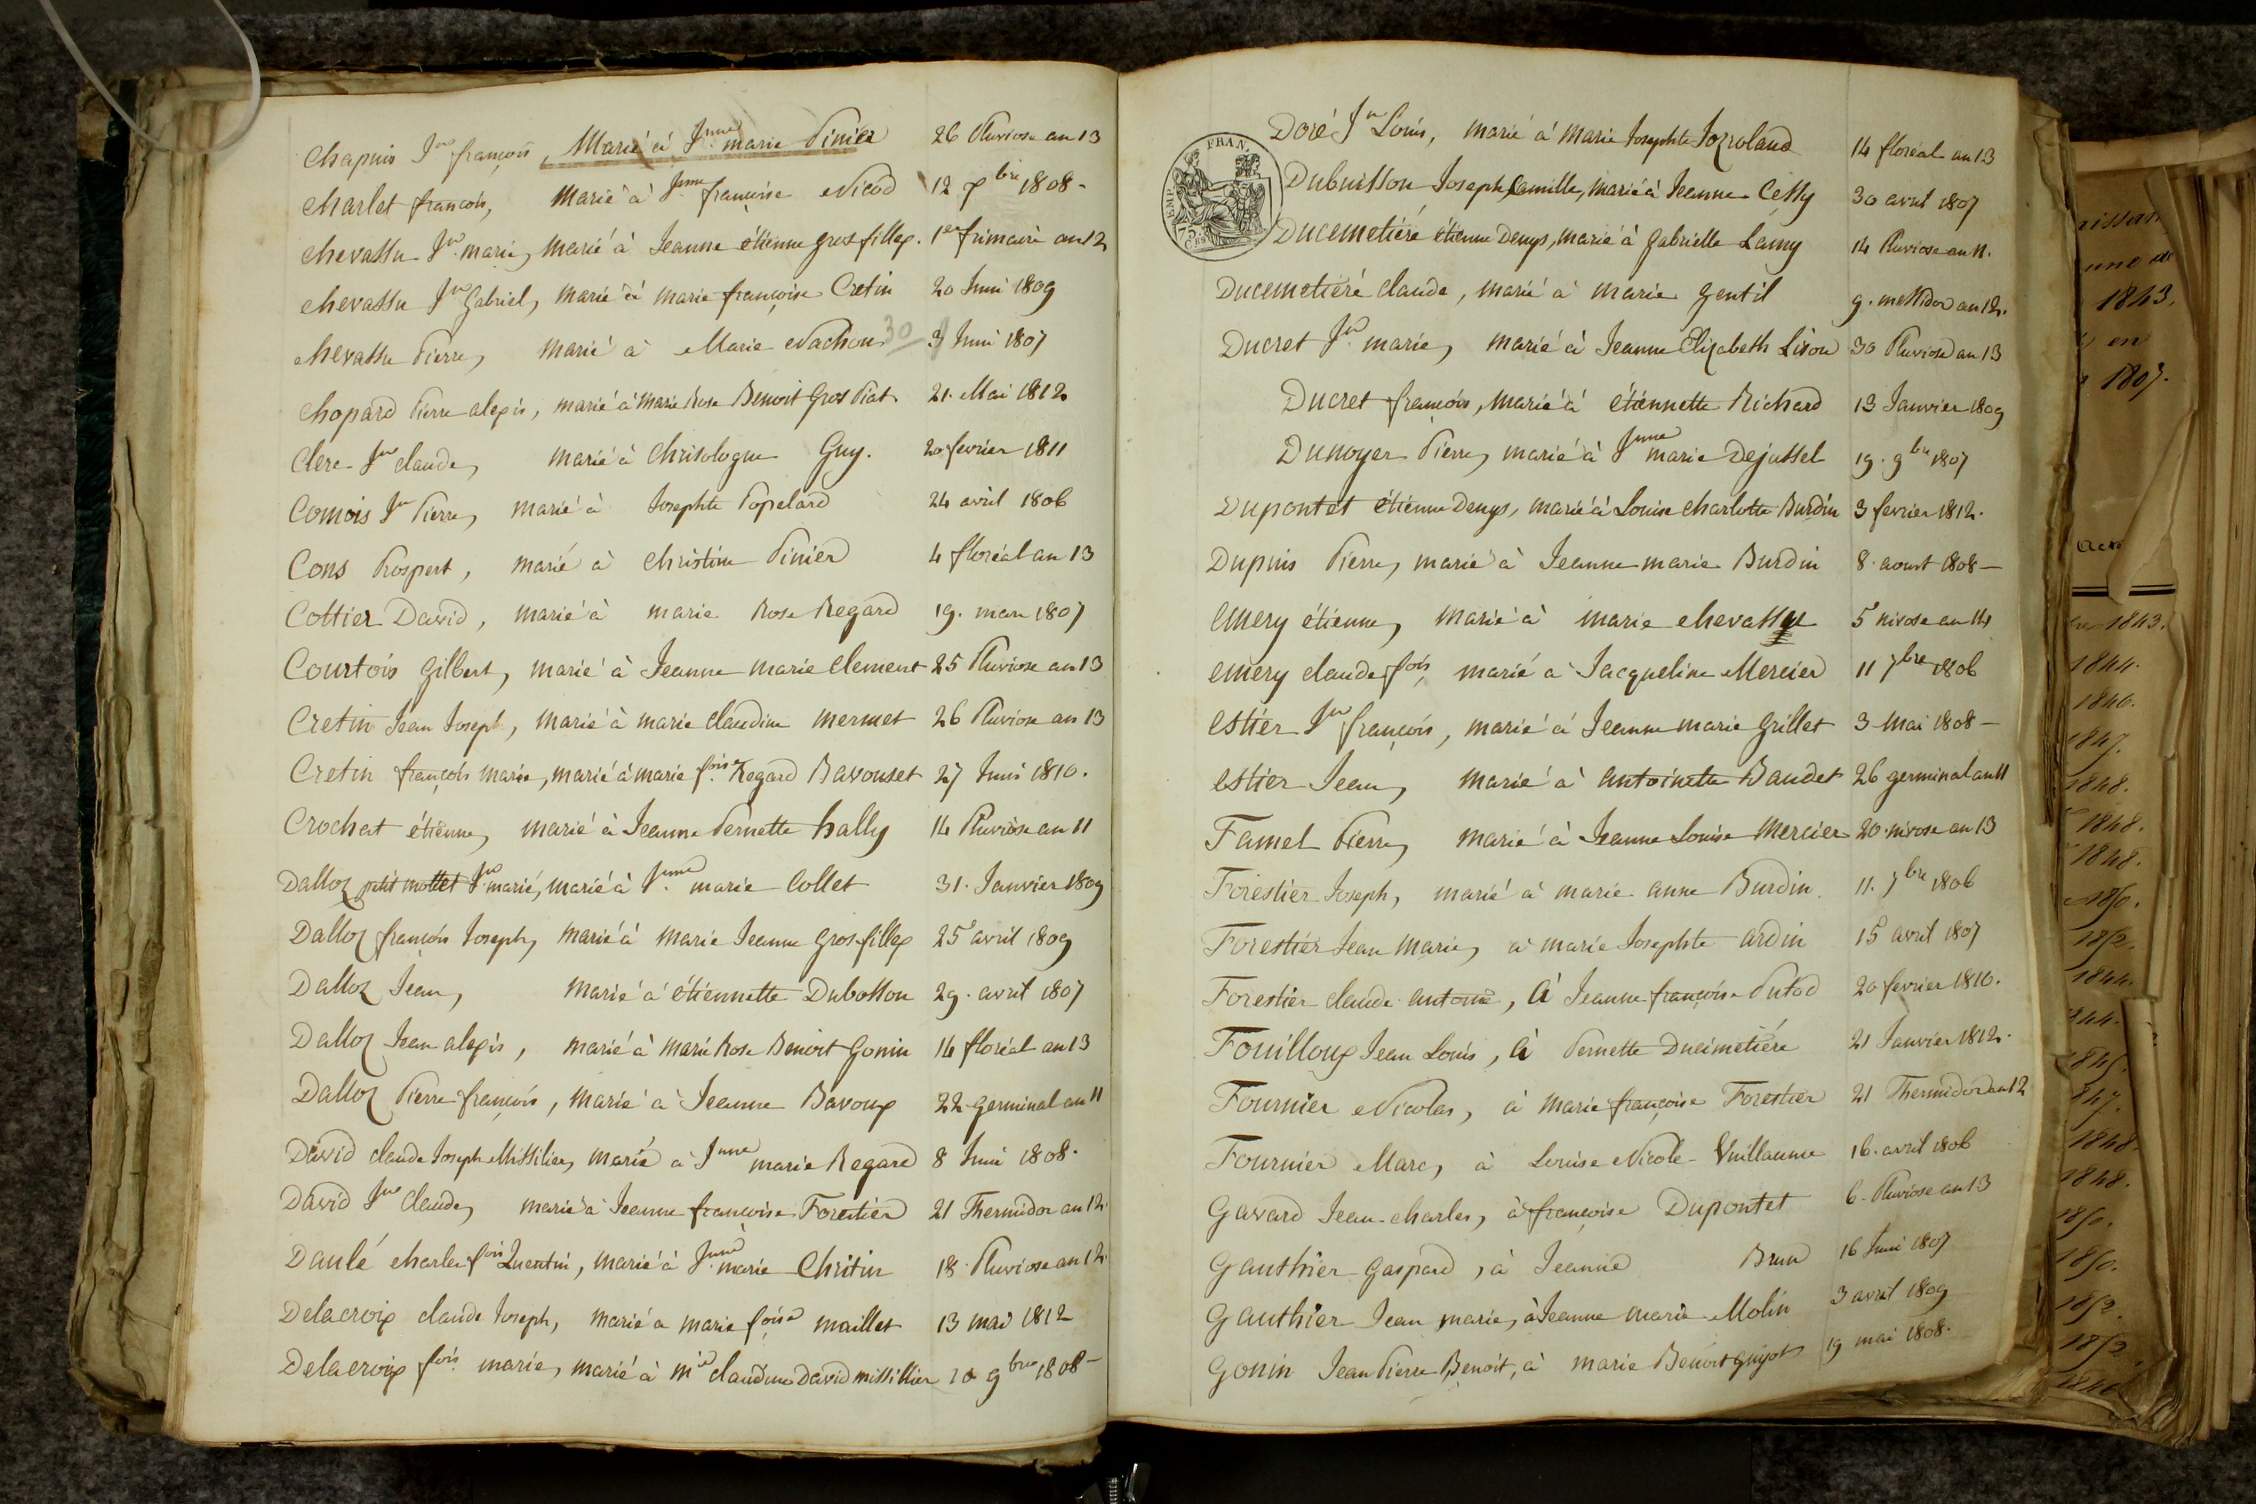 Chapuis Jn françois, Marié à Jnne marie Pinier 26 Pluviose an 13
Charlet françois, marié à Jnne françoise Nicod 12 xbre 1808
Chevassu Jn marie, marié à Jeanne étienne grosfillex. 1er frimaire an 12
Chevassu Jn Gabriel, marié à marie françoise Cretin 20 Juin 1809
Chevassu Pierre, marié à Marie Vachon 30 3 Juin 1807
Chopard Pierre alexis, marié à Marie Rose Benoit Gros Piat 21. Mai 1812
Clerc Jn claude, marié à Chrisologue Guy. 20 fevrier 1811
Comois Jn Pierre, marié à Josephte Popelard 24 avril 1806
Cons Prospert, marié à Christine Pinier 4 floréal an 13
Cottier David, marié à marie Rose Regard 19. mars 1807
Courtois Gilbert, marié à Jeanne marie Clement 25 Pluviose an 13
Cretin Jean Joseph, marié à marie claudine mermet 26 Pluviose an 13
Cretin françois marie, marié à marie foise Regard Bavouset 27 Juin 1810.
Crochat étienne, marié à Jeanne Pernette hally 14 Pluviôse an 11
Dalloz petit mottet Jn marie, marié à Jnne marie Collet 31. Janvier 1809
Dalloz françois Joseph, marié à marie Jeanne grosfillex 25 avril 1809
Dalloz Jean, marié à étiennette Dubosson 29. avril 1807
Dalloz Jean alexis, marié à marie Rose Benoit Gonin 14 floréal an 13
Dalloz Pierre françois, marié à Jeanne Bavoux 22 germinal an 11
David claude Joseph Missilier, marié à Jnne marie Regard 8 Juin 1808.
David Jn Claude, marié à Jeanne françoise Forestier 21 Thermidor an 12
Daulé charles fois Quentin, marié à Jnne marie Chritin 18 Pluviose an 12
Delacroix claude Joseph, marié à marie foise maillet 13 mai 1812
Delacroix fois marie, marié à mie claudine David missillier 10 9bre 1808
FRAN.
Doré Jn Louis, marié à Marie Josephte Jozroland 14 floréal an 13
Dubuisson Joseph Camille, marié à Jeanne Cessy 30 avril 1807
Ducimetiéré étienne Denys, marié à gabrielle Lamy 14 Pluviose an 11.
Ducimetiéré claude, marié à marie gentil 9. messidor an 12.
Ducret Jn marie, marié à Jeanne Elizabeth Lison 30 Pluviose an 13
Ducret françois, marié à étiennette Richard 13 Janvier 1809
Dunoyer Pierre, marié à Jnne marie Dejussel 19. 9bre 1807
Dupontet étienne Denys, marié à Louise charlotte Burdin 3 fevrier 1812.
Dupuis Pierre, marié à Jeanne marie Burdin 8. aoust 1808
emery étienne, marié à marie chevassu 5 nivose an 14
emery claude fois, marié à Jacqueline Mercier 11 7bre 1806
estier Jn françois, marié à Jeanne marie Grillet 3 mai 1808
estier Jean, marié à antoinette Baudet 26 germinal an 11
Famel Pierre, marié à Jeanne Louise Mercier 20. nivose an 13
Forestier Joseph, marié à marie anne Burdin 11. 7bre 1806
Forestier Jean Marie, à marie Josephte ardin 15 avril 1807
Forestier claude antoine, à Jeanne françoise Putod 20 fevrier 1810.
Fouilloux Jean Louis, à Pernette Ducimetiére 21 Janvier 1812.
Fournier Nicolas, à marie françoise Forestier 21 Thermidor an 12
Fournier Marc, à Louise Nicole Vuillaume 16. avril 1806
Gavard Jean-charles, à françoise Dupontet 6. Pluviose an 13
Gauthier Gaspard, à Jeanne Brun 16 Juin 1807
Gauthier Jean marie, à Jeanne marie Molin 3 avril 1809
Gonin Jean Pierre Benoit, à marie Benoit guyot 19 mai 1808.
1843.
en
1807.
1843.
1844.
1846.
1847.
1848.
1848.
1848.
1850.
1852.
1844.
1847.
1848.
1848.
1850.
1850.
1852.
1852